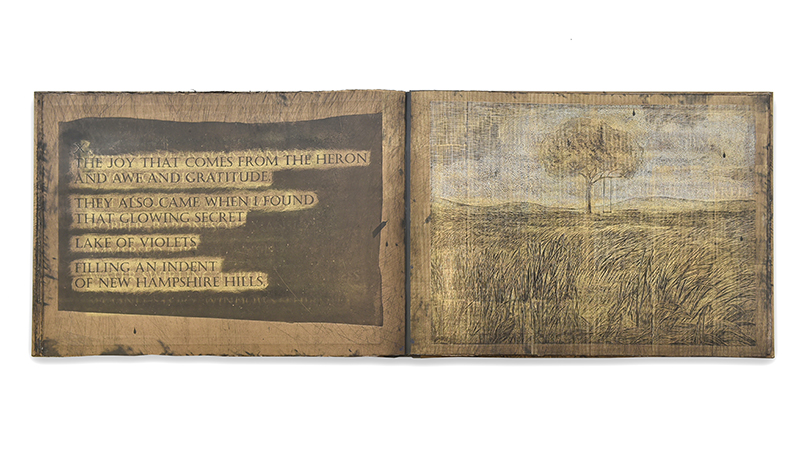 THE JOY THAT COMES FROM THE HERON
AND AWE AND GRATITUDE.
THEY ALSO CAME WHEN I FOUND
THAT GLOWING SECRET
LAKE OF VIOLETS
FILLING AN INDENT
OF NEW HAMPSHIRE HILLS.